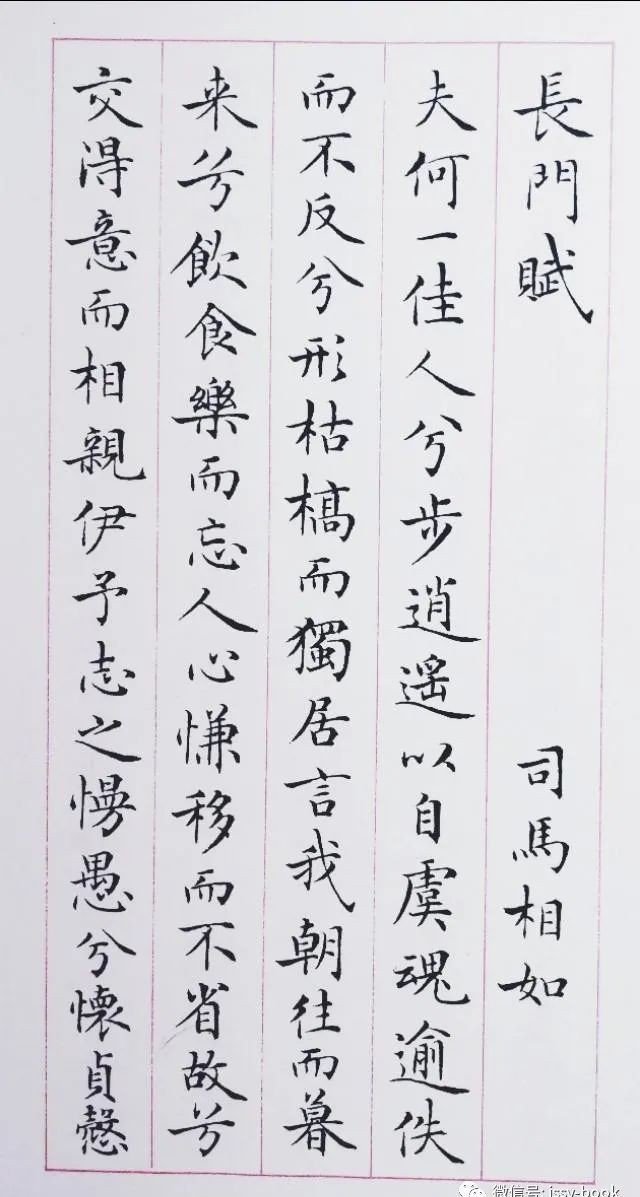 長門賦 司馬相如
夫何一佳人兮步逍遥以自虞魂逾佚
而不反兮形枯槁而獨居言我朝往而暮
来兮飲食樂而忘人心慊移而不省故兮
交得意而相親伊予志之慢愚兮懷貞慤
微信号: jssy-book